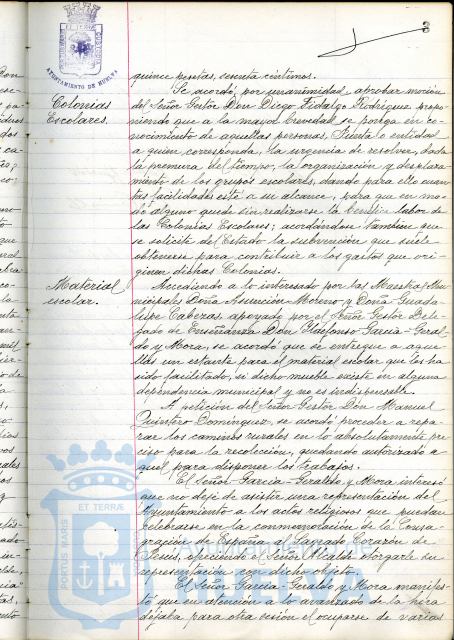 3
AYUNTAMIENTO DE HUELVA
quince pesetas, sesenta céntimos.
Colonias
Escolares.
Se acordó, por unanimidad, aprobar moción
del Señor Gestor Don Diego Fidalgo Rodríguez, propo-
niendo que a la mayor brevedad se ponga en co-
nocimiento de aquellas personas, Junta o entidad
a quien corresponda, la urgencia de resolver, dada
la premura del tiempo, la organización y desplaza-
miento de los grupos escolares, dando para ello cuan-
tas facilidades esté a su alcance, para que en mo-
do alguno quede sin realizarse la benéfica labor de
las Colonias Escolares; acordándose también que
se solicite del Estado la subvención que suele
obtenerse para contribuir a los gastos que ori-
ginen dichas Colonias.
Material
escolar.
Accediendo a lo interesado por las Maestras Mu-
nicipales Doña Asunción Moreno y Doña Guada-
lupe Cabezas, apoyado por el Señor Gestor Dele-
gado de Enseñanza Don Ildefonso García-Geral-
do y Mora, se acordó que se entregue a aque-
llas un estante para el material escolar que les ha
sido facilitado, si dicho mueble existe en alguna
dependencia municipal y no es indispensable.
A petición del Señor Gestor Don Manuel
Quintero Domínguez, se acordó proceder a repa-
rar los caminos rurales en lo absolutamente pre-
ciso para la recolección, quedando autorizado a
quel para disponer los trabajos.
El Señor García-Geraldo y Mora interesó
que no deje de asistir una representación del
Ayuntamiento a los actos religiosos que puedan
celebrarse en la conmemoración de la Consa-
gración de España al Sagrado Corazón de
Jesús, ofreciendo el Señor Alcalde otorgarle su
representación con dicho objeto.
El Señor García-Geraldo y Mora manifes-
tó que en atención a lo avanzado de la hora
dejaba para otra sesión el ocuparse de varias
PORTUS MARIS ET TERRÆ CUSTODIA